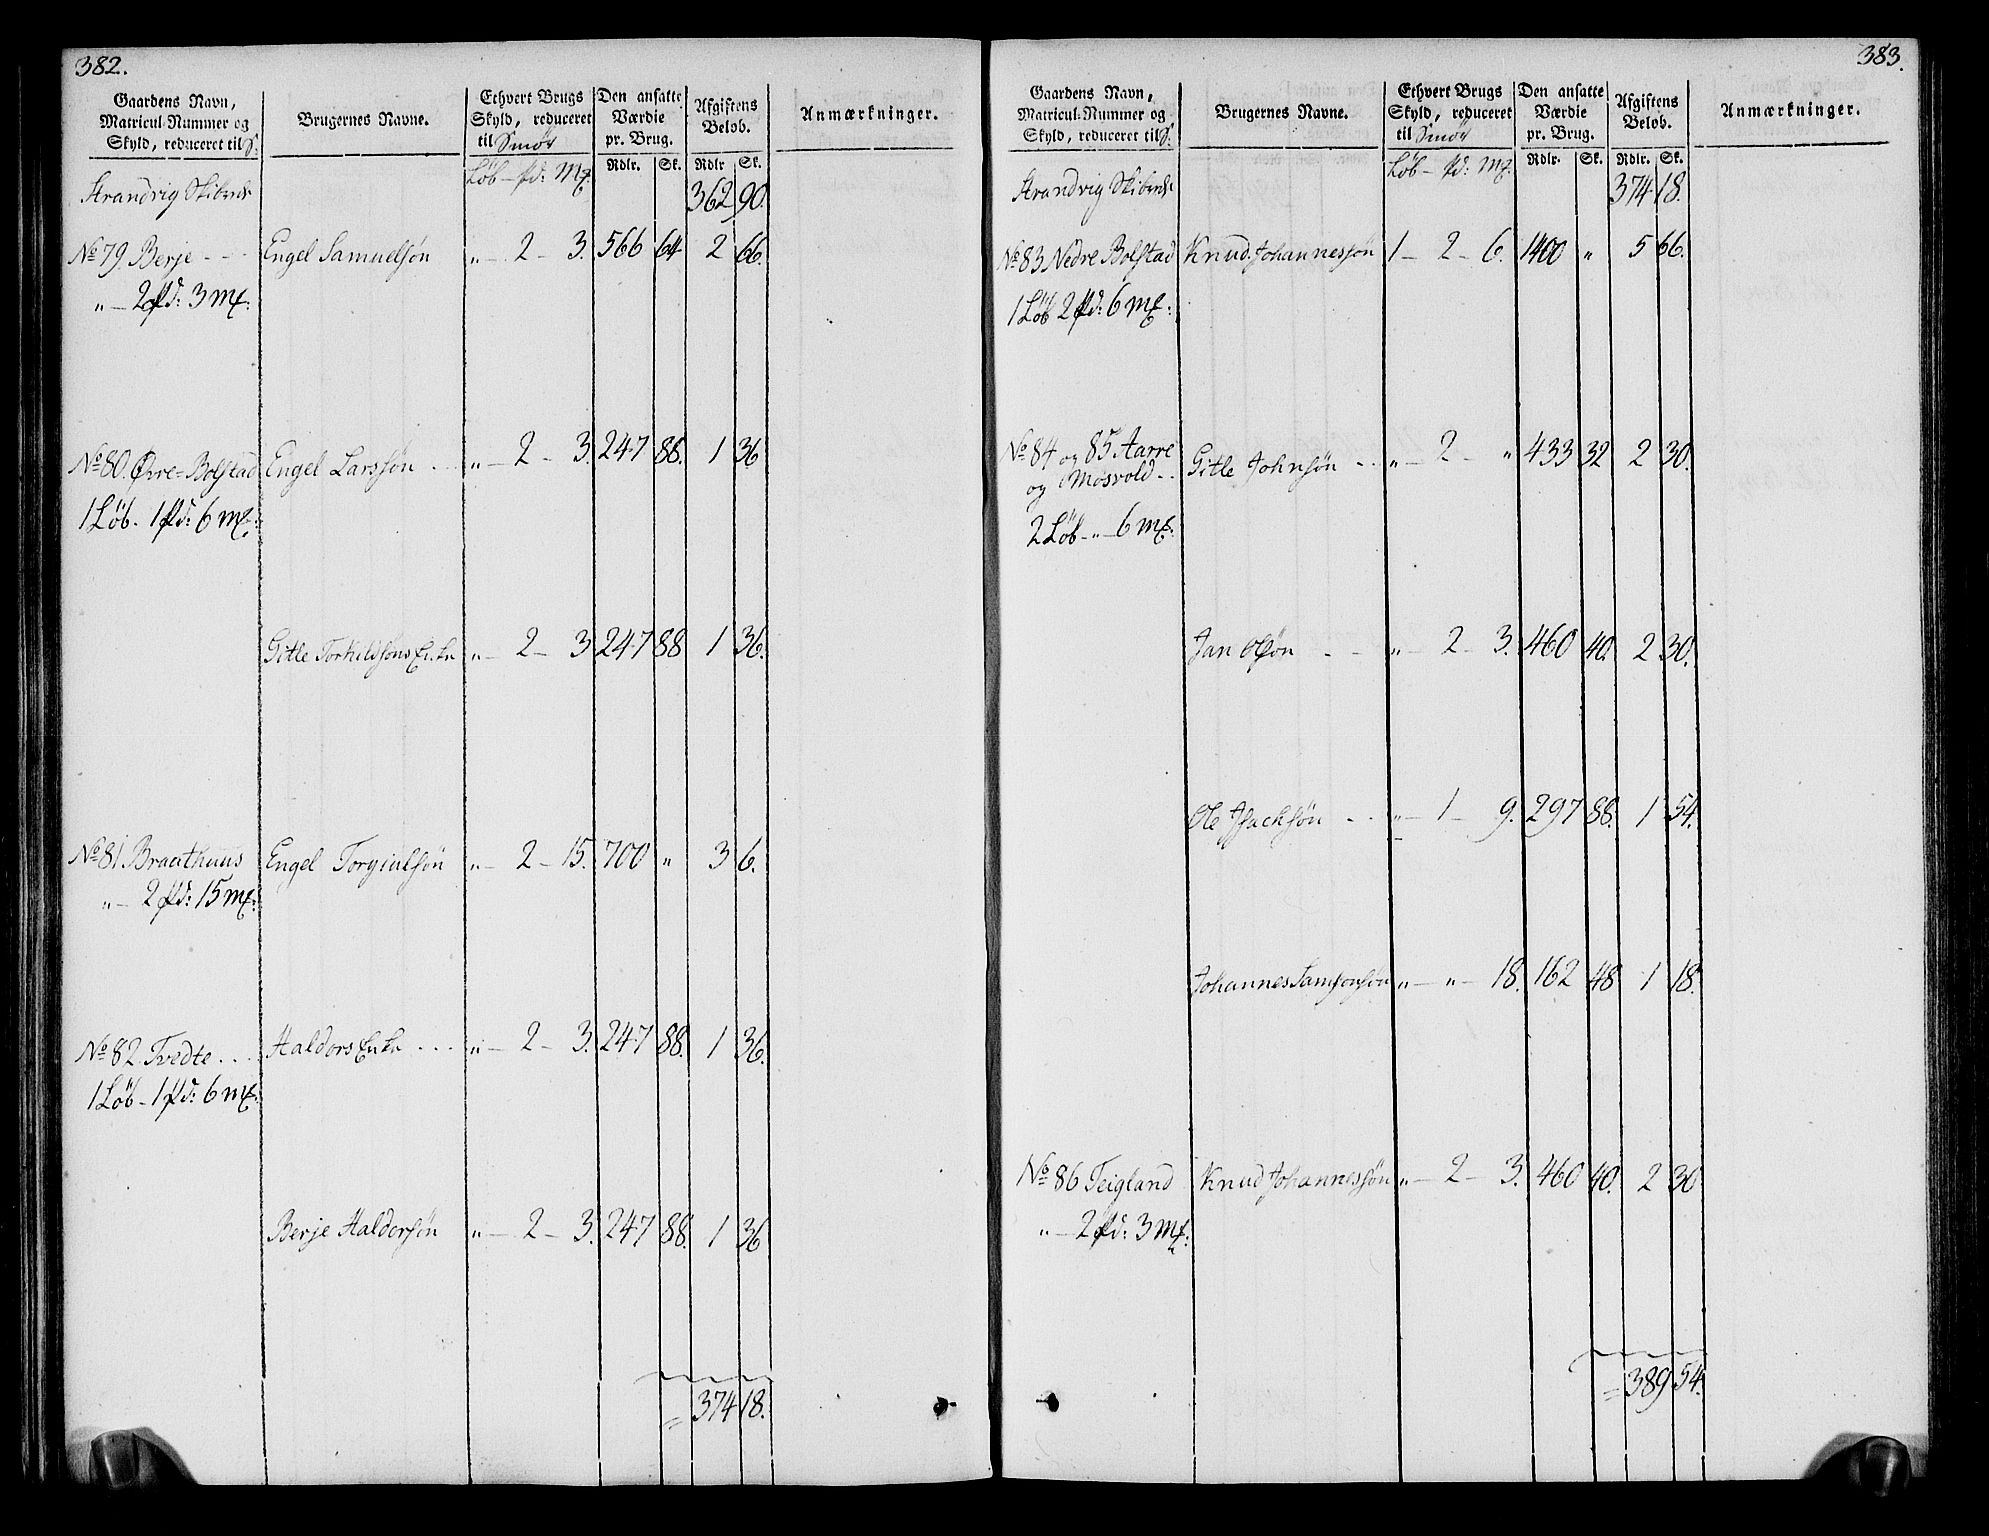 382.
Gaardens Navn, Matricul-Nummer og Skyld, reduceret til S. | Brugernes Navne. | Ethvert Brugs Skyld, reduceret til Smör | Den ansatte Værdie pr. Brug. | Afgiftens Beløb. | Anmærkninger.
Løb - pd: Mk. | Rdlr. | Sk. | Rdlr | Sk.
Strandvig Skibrede 362 90.
No 79. Berje - - - Engel Samuelsøn „ - 2 - 3. 566 64 2 66.
„ - 2 pd: 3 mk:
No 80. Øvre-Bolstad Engel Larssøn . . „ - 2 - 3. 247 88. 1 36
1 Løb - 1 pd: 6 mk:
Gitle Torkildsøns Enke „ - 2 - 3 247 88 1 36.
No 81 Braathuus Engel Torgialsøn „ - 2 - 15. 700 „ 3 6.
„ - 2 pd: 15 mk:
No 82 Tvedte . . . Haldors Enke . . . „ - 2 - 3. 247 88. 1 36.
1 Løb - 1 pd: 6 mk:
Berje Haldorsøn „ - 2 - 3. 247 88. 1 36
= 374 18.
383.
Gaardens Navn, Matricul-Nummer og Skyld, reduceret til S. | Brugernes Navne. | Ethvert Brugs Skyld, reduceret til Smör | Den ansatte Værdie pr. Brug. | Afgiftens Beløb. | Anmærkninger.
Løb - pd: Mk. | Rdlr. | Sk. | Rdlr. | Sk.
Strandvig Skibrede 374 18.
No 83 Nedre Bolstad Knud Johannessøn 1 - 2 - 6. 1400 „ 5 66.
1 Løb 2 pd: 6 mk:
No 84 og 85 Aarre
og Mosvold . . Gitle Johnsøn . . „ - 2 - „ 433 32 2 30.
2 Løb - „ - 6 mk:
Jan Olsøn . - „ - 2 - 3. 460 40. 2 30.
Ole Isachsøn . . „ - 1 - 9. 297 88. 1 54.
Johannes Samsonsøn „ - „ - 18. 162 48 1 18.
No 86 Teigland Knud Johannessøn „ - 2 - 3. 460 40. 2 30
„ - 2 pd: 3 mk:
= 389 54.